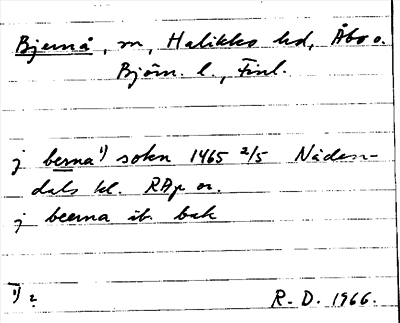 Bjernå, sn, Halikko hd, Åbo o.
Björn. l., Finl.
j berna¹⁾ sokn 1465 2/5 Nåden-
dals kl. RAp or.
j beerna ib. bak
¹⁾ ?
R. D. 1966.